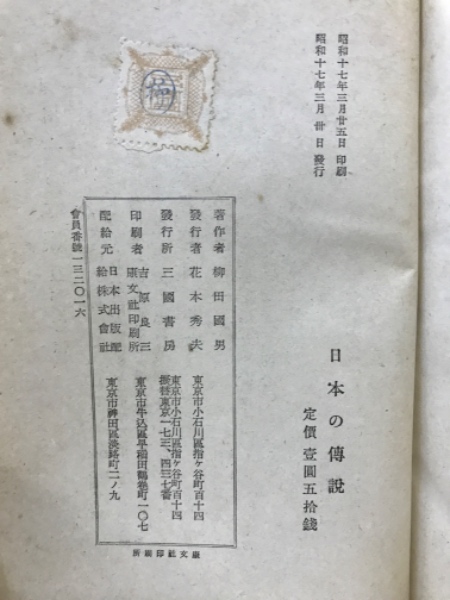 昭和十七年三月廿五日 印刷
昭和十七年三月卅日 發行
日本の傳説
定價 壹圓五拾錢
著作者 柳田國男
發行者 花本秀夫
東京市小石川區指ヶ谷町百十四
發行所 三國書房
東京市小石川區指ヶ谷町百十四
振替東京一七三、四三七番
印刷者 吉原良三
康文社印刷所
東京市牛込區早稲田鶴巻町一〇七
配給元 日本出版配給株式會社
東京市神田區淡路町二ノ九
會員番號一三二〇一六
康文社印刷所